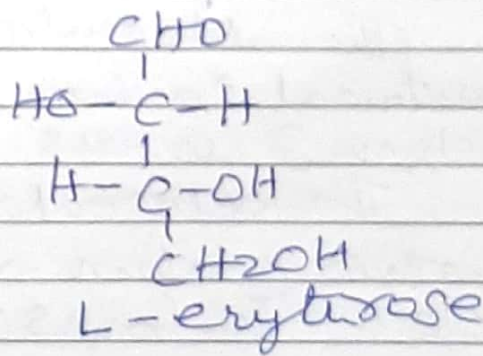 CHO
HO-C-H
H-C-OH
CH2OH
L-erythrose